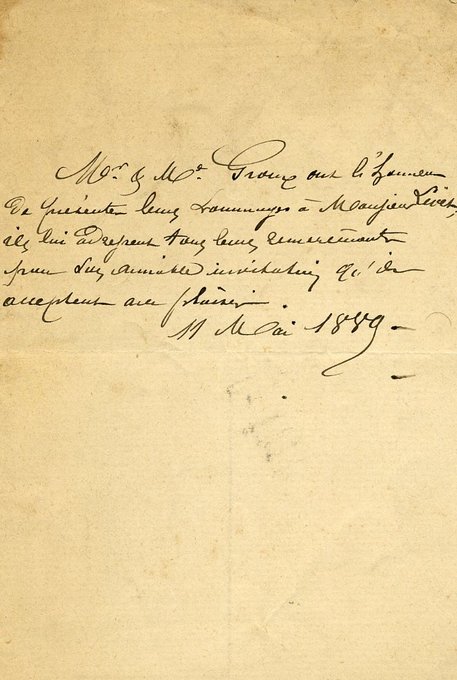 Mr. & Me. Groux ont l'honneur
de présenter leurs hommages à Monsieur Livet,
ils lui adressent tous leurs remerciements
pour son aimable invitation qu'ils
acceptent avec plaisir.
11 Mai 1889